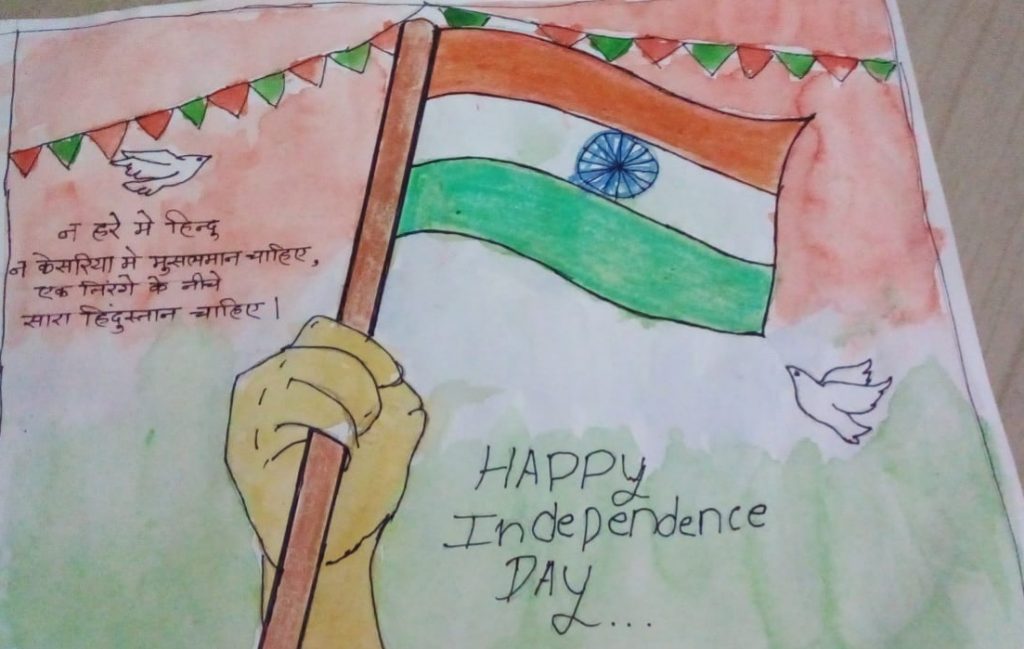 न हरे मे हिन्दु
न केसरिया मे मुसलमान चाहिए,
एक तिरंगे के नीचे
सारा हिंदुस्तान चाहिए।
HAPPY
Independence
DAY...